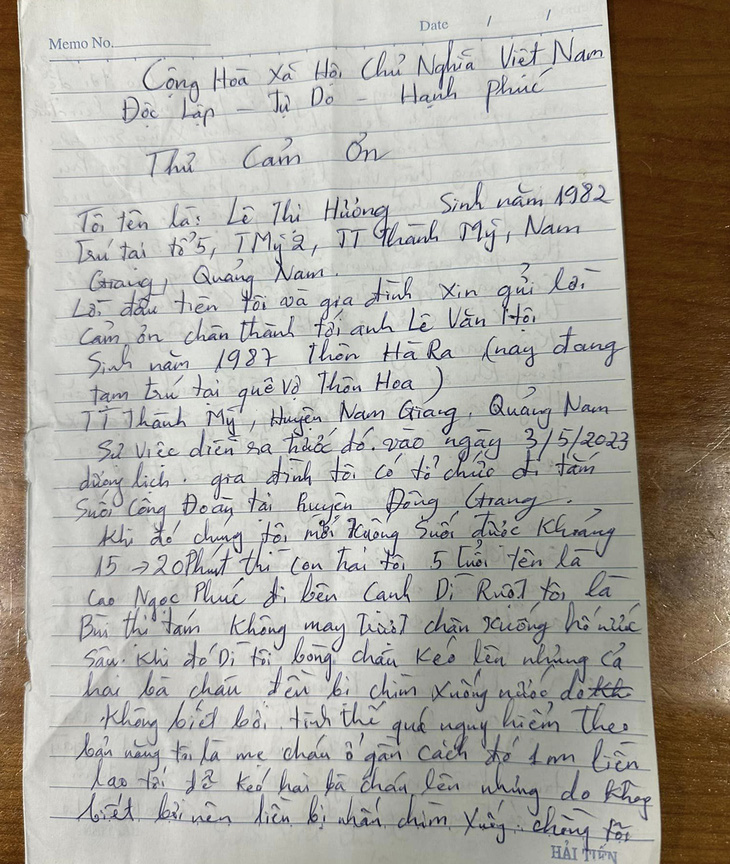 Date / /
Memo No.
Cộng Hoà Xã Hội Chủ Nghĩa Việt Nam
Độc Lập - Tự Do - Hạnh phúc
Thư Cảm Ơn
Tôi tên là: Lê Thị Hường Sinh năm 1982
Trú tại tổ 5, TMỹ 2, TT Thành Mỹ, Nam
Giang, Quảng Nam.
Lời đầu tiên tôi và gia đình xin gửi lời
Cảm ơn chân thành tới anh Lê Văn Hội
Sinh năm 1987 Thôn Hà Ra (nay đang
tạm trú tại quê vợ Thôn Hoa)
TT Thành Mỹ, Huyện Nam Giang, Quảng Nam
Sự việc diễn ra trước đó. vào ngày 3/5/2023
dương lịch. gia đình tôi có tổ chức đi tắm
Suối Công Đoàn tại huyện Đông Giang.
Khi đó chúng tôi mới xuống Suối được khoảng
15 → 20 Phút thì con trai tôi 5 tuổi tên là
Cao Ngọc Phúc đi bên cạnh Dì Ruột tôi là
Bùi thị tám không may trượt chân xuống hố nước
Sâu. Khi đó Dì tôi bồng cháu kéo lên nhưng cả
hai bà cháu đều bị chìm xuống nước do
không biết bơi. tình thế quá nguy hiểm theo
bản năng tôi là mẹ cháu ở gần cách đó 1m liền
lao tới để kéo hai bà cháu lên nhưng do không
biết bơi nên liền bị nhấn chìm xuống. chồng tôi
HẢI TIẾN